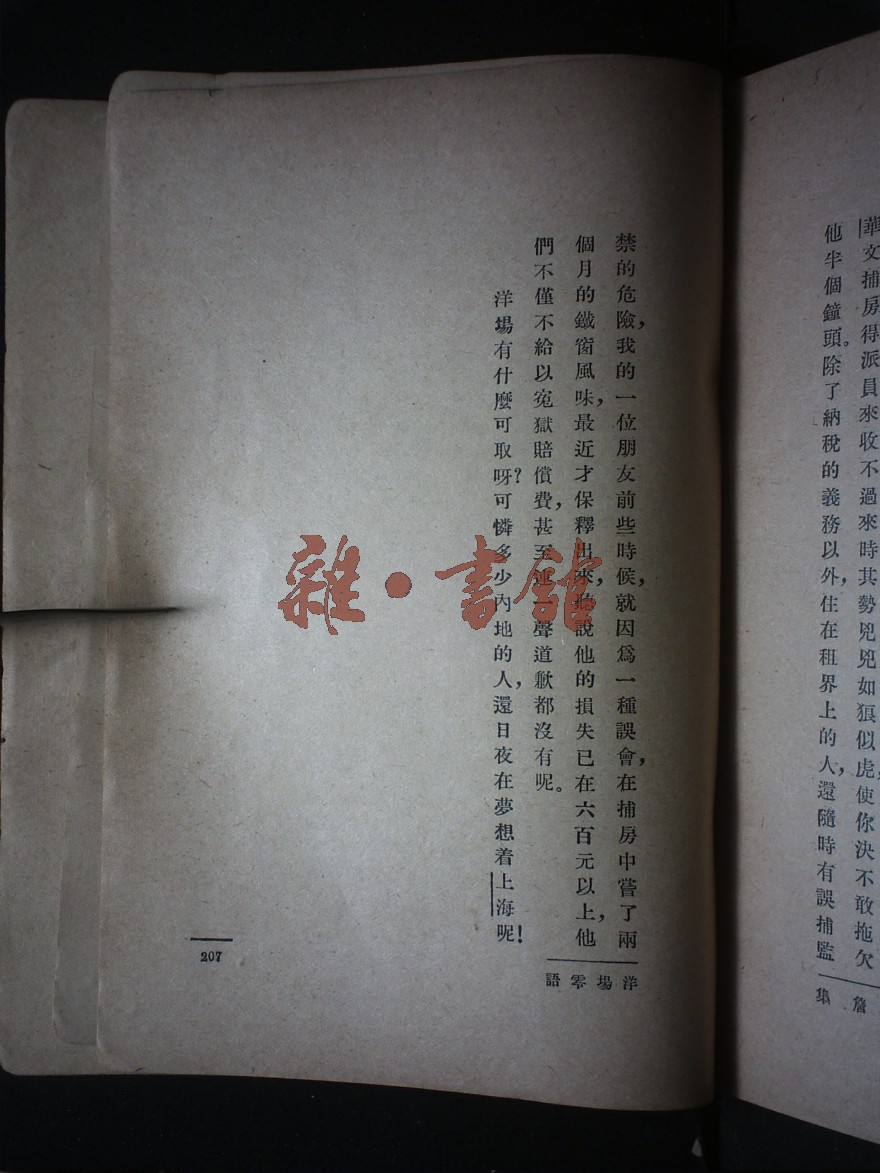 華文捕房得派員來收不過來時其勢兇兇如狼似虎，使你決不敢拖欠
他半個鐘頭。除了納稅的義務以外，住在租界上的人，還隨時有誤捕監
禁的危險，我的一位朋友前些時候，就因爲一種誤會，在捕房中嘗了兩
個月的鐵窗風味，最近才保釋出來，聽說他的損失已在六百元以上，他
們不僅不給以冤獄賠償費，甚至連一聲道歉都沒有呢。
洋場有什麼可取呀？可憐多少內地的人，還日夜在夢想着上海呢！
洋場零語
207
雜·書館